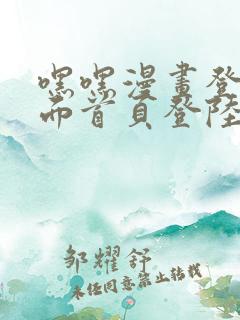 嘿嘿漫畫登
而首頁登陸
邹耀舒
未经同意禁止转载